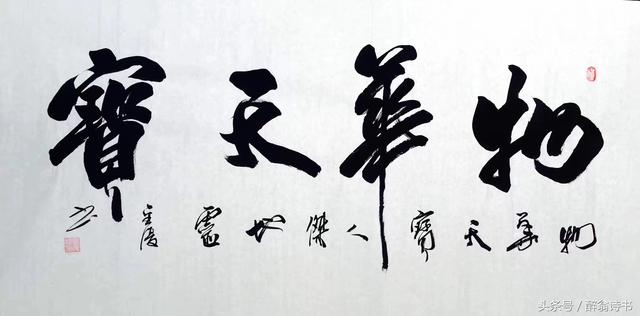 物華天寶
物華天寶人傑地靈
书
头条号／醉翁诗书